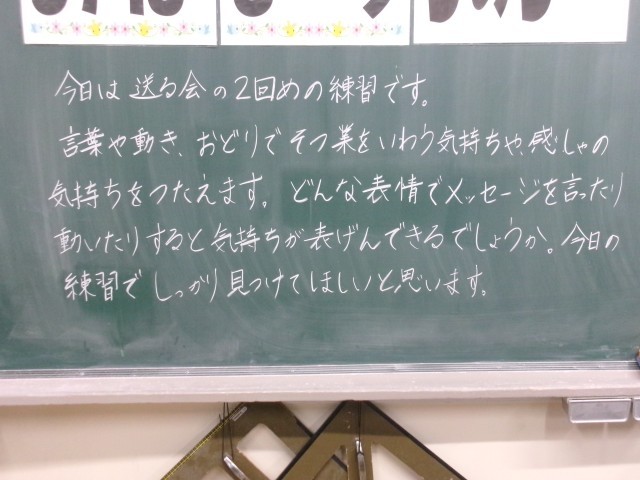 今日は送る会の2回めの練習です。
言葉や動き、おどりでそつ業をいわう気持ちや、感じゃの
気持ちをつたえます。どんな表情でメッセージを言ったり
動いたりすると気持ちが表げんできるでしょうか。今日の
練習でしっかり見つけてほしいと思います。